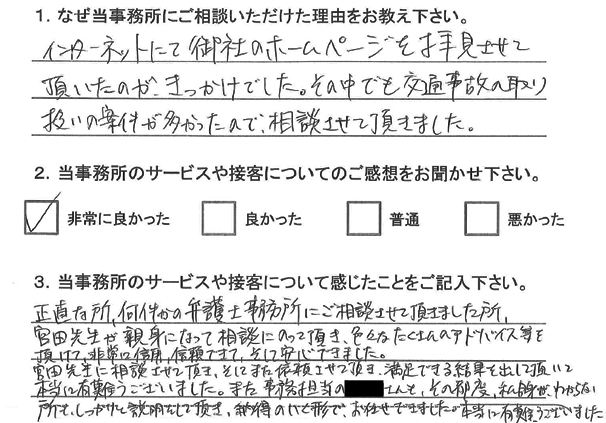 1. なぜ当事務所にご相談いただけた理由をお教え下さい。
インターネットにて御社のホームページを拝見させて
頂いたのが、きっかけでした。その中でも交通事故の取り
扱いの案件が多かったので、相談させて頂きました。
2. 当事務所のサービスや接客についてのご感想をお聞かせ下さい。
非常に良かった 良かった 普通 悪かった
3. 当事務所のサービスや接客について感じたことをご記入下さい。
正直な所、何件かの弁護士事務所にご相談させて頂きました所、
宮田先生が親身になって相談にのって頂き、色々なたくさんのアドバイス等を
頂けて、非常に信用、信頼できて、そして安心できました。
宮田先生に相談させて頂き、そしてまた依頼させて頂き、満足できる結果を出して頂いて
本当に有難うございました。また事務担当の さんも、その都度、私自身がわからない
所も、しっかりと説明をして頂き、納得のいく形で、お任せできました。本当に有難うございました